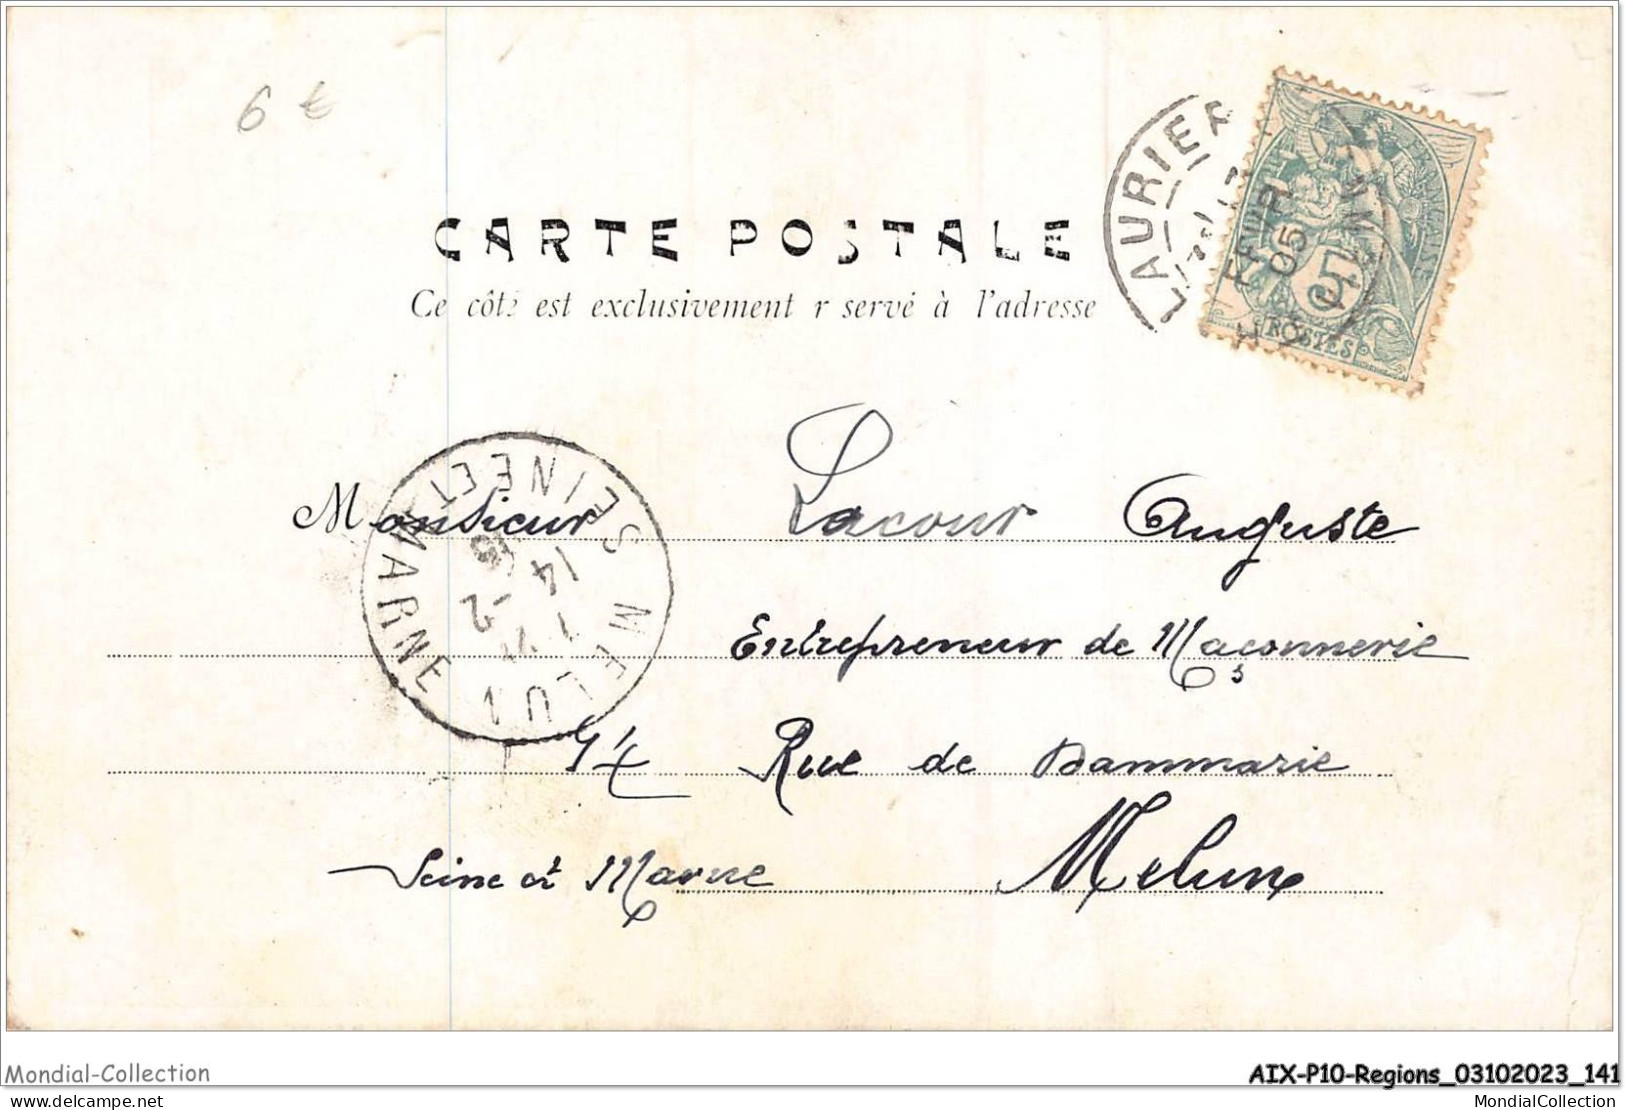 6 €
CARTE POSTALE
Ce côté est exclusivement r servé à l'adresse
LAURIE
FEVR
05
5
POSTES
FRANÇAISE
MELUN
SEINE ET MARNE
14 -2
05
Monsieur Lacour Auguste
Entrepreneur de Maçonnerie
Rue de Dammarie
Melun
Seine et Marne
Mondial-Collection
AIX-P10-Regions_03102023_141
delcampe.net
MondialCollection